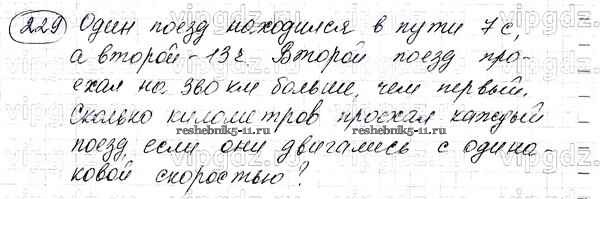 229 Один поезд находился в пути 7 с,
а второй - 13 ч. Второй поезд про-
ехал на 360 км больше, чем первый.
Сколько километров проехал каждый
reshebnik5-11.ru
поезд, если они двигались с одина-
ковой скоростью?
vipgdz.